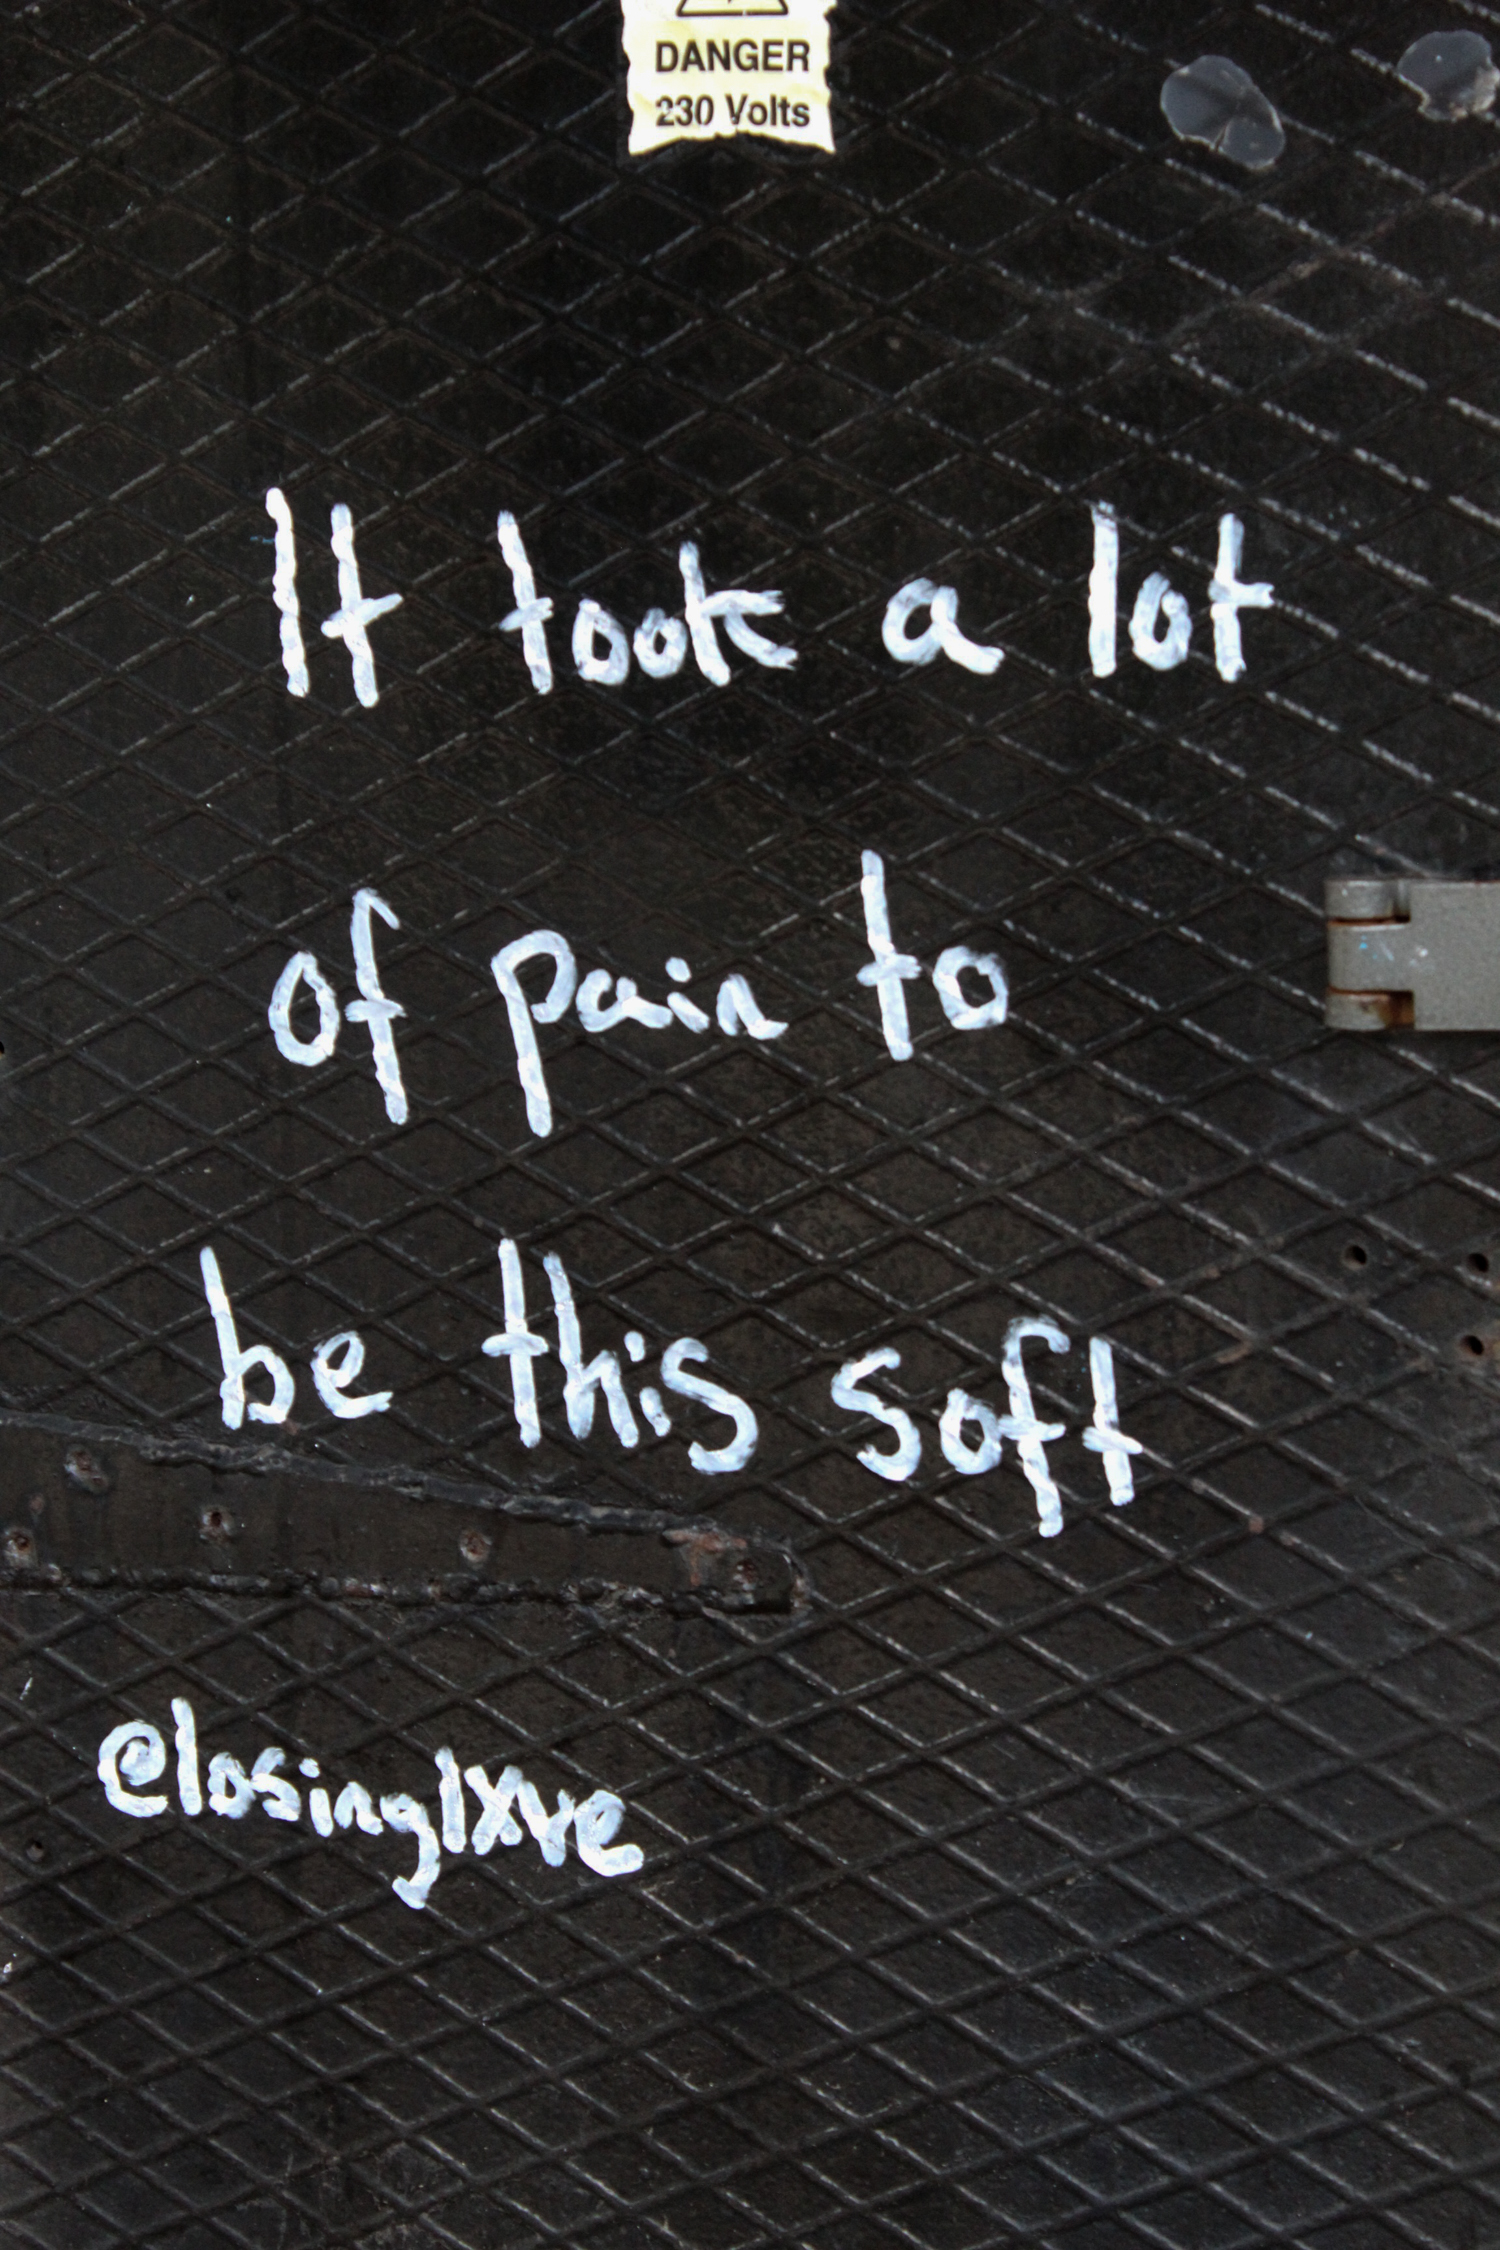 DANGER
230 Volts
It took a lot
of pain to
be this soft
@losinglxve